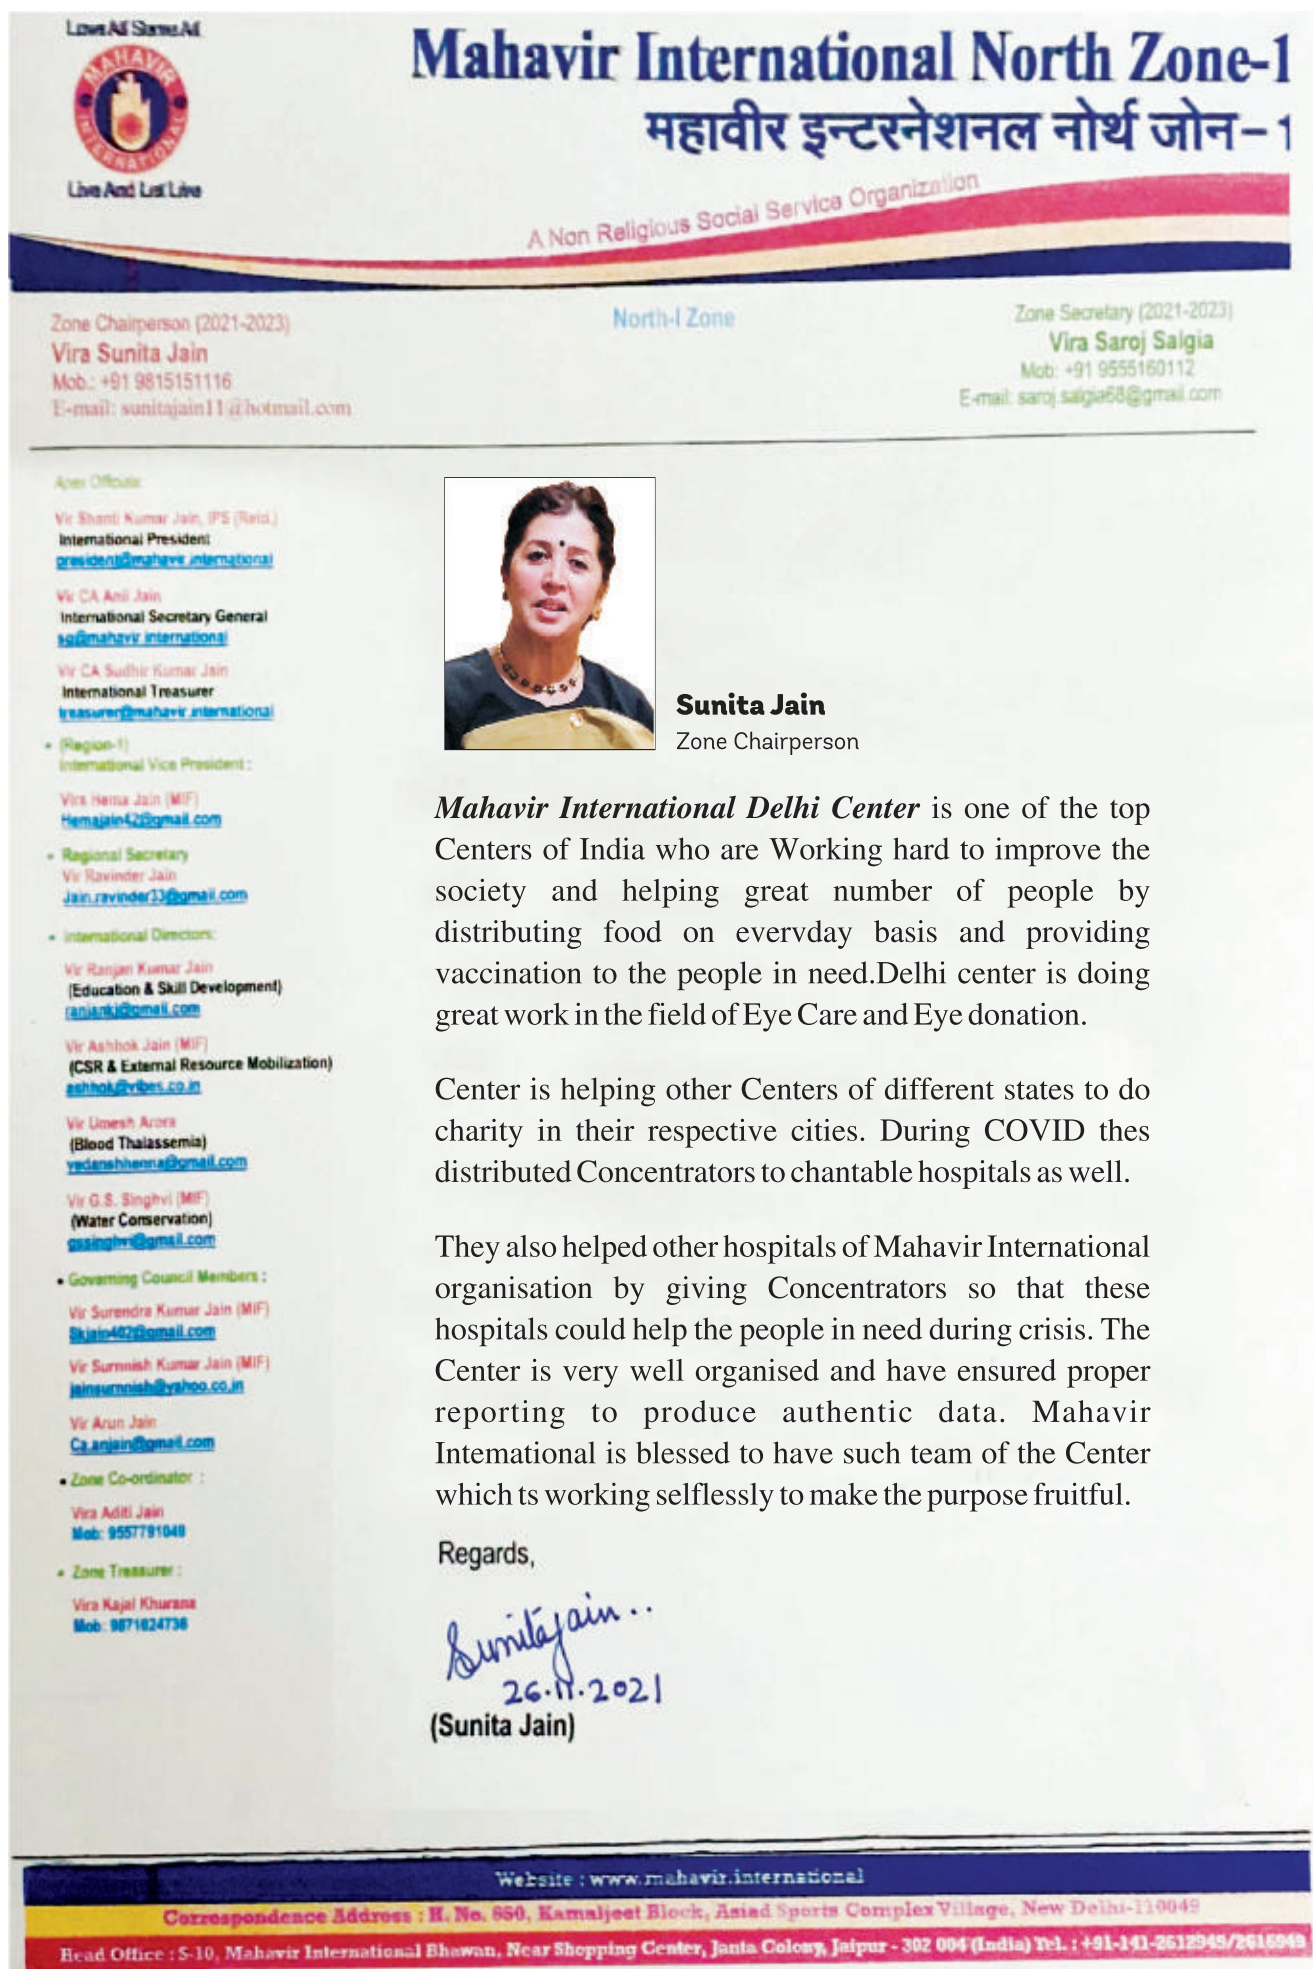 Love All Serve All
MAHAVIR INTERNATIONAL
Live And Let Live
Mahavir International North Zone-1
महावीर इन्टरनेशनल नोर्थ जोन-1
A Non Religious Social Service Organization
Zone Chairperson (2021-2023)
Vira Sunita Jain
Mob.: +91 9815151116
E-mail: sunitajain11@hotmail.com
North-I Zone
Zone Secretary (2021-2023)
Vira Saroj Salgia
Mob: +91 9555160112
E-mail: saroj.salgia68@gmail.com
Apex Officials:
Vir Shanti Kumar Jain, IPS (Retd.)
International President
president@mahavir.international
Vir CA Anil Jain
International Secretary General
sg@mahavir.international
Vir CA Sudhir Kumar Jain
International Treasurer
treasurer@mahavir.international
• (Region-1)
International Vice President :
Vira Hema Jain (MIF)
Hemajain42@gmail.com
• Regional Secretary
Vir Ravinder Jain
Jain.ravinder33@gmail.com
• International Directors:
Vir Ranjan Kumar Jain
(Education & Skill Development)
ranjankj@gmail.com
Vir Ashhok Jain (MIF)
(CSR & External Resource Mobilization)
ashhok@vibes.co.in
Vir Umesh Arora
(Blood Thalassemia)
vedanshhenna@gmail.com
Vir G.S. Singhvi (MIF)
(Water Conservation)
gssinghvi@gmail.com
• Governing Council Members :
Vir Surendra Kumar Jain (MIF)
Skjain402@gmail.com
Vir Surnnish Kumar Jain (MIF)
jainsurnnish@yahoo.co.in
Vir Arun Jain
Ca.anjain@gmail.com
• Zone Co-ordinator :
Vira Aditi Jain
Mob: 9557791049
• Zone Treasurer :
Vira Kajal Khurana
Mob: 9871024736
Sunita Jain
Zone Chairperson
Mahavir International Delhi Center is one of the top
Centers of India who are Working hard to improve the
society and helping great number of people by
distributing food on evervday basis and providing
vaccination to the people in need.Delhi center is doing
great work in the field of Eye Care and Eye donation.
Center is helping other Centers of different states to do
charity in their respective cities. During COVID thes
distributed Concentrators to chantable hospitals as well.
They also helped other hospitals of Mahavir International
organisation by giving Concentrators so that these
hospitals could help the people in need during crisis. The
Center is very well organised and have ensured proper
reporting to produce authentic data. Mahavir
Intemational is blessed to have such team of the Center
which ts working selflessly to make the purpose fruitful.
Regards,
Sunitajain..
26.11.2021
(Sunita Jain)
Website : www.mahavir.international
Correspondence Address : H. No. 850, Kamaljeet Block, Asiad Sports Complex Village, New Delhi-110049
Head Office : S-10, Mahavir International Bhawan, Near Shopping Center, Janta Colony, Jaipur - 302 004 (India) Tel. : +91-141-2612949/2616949